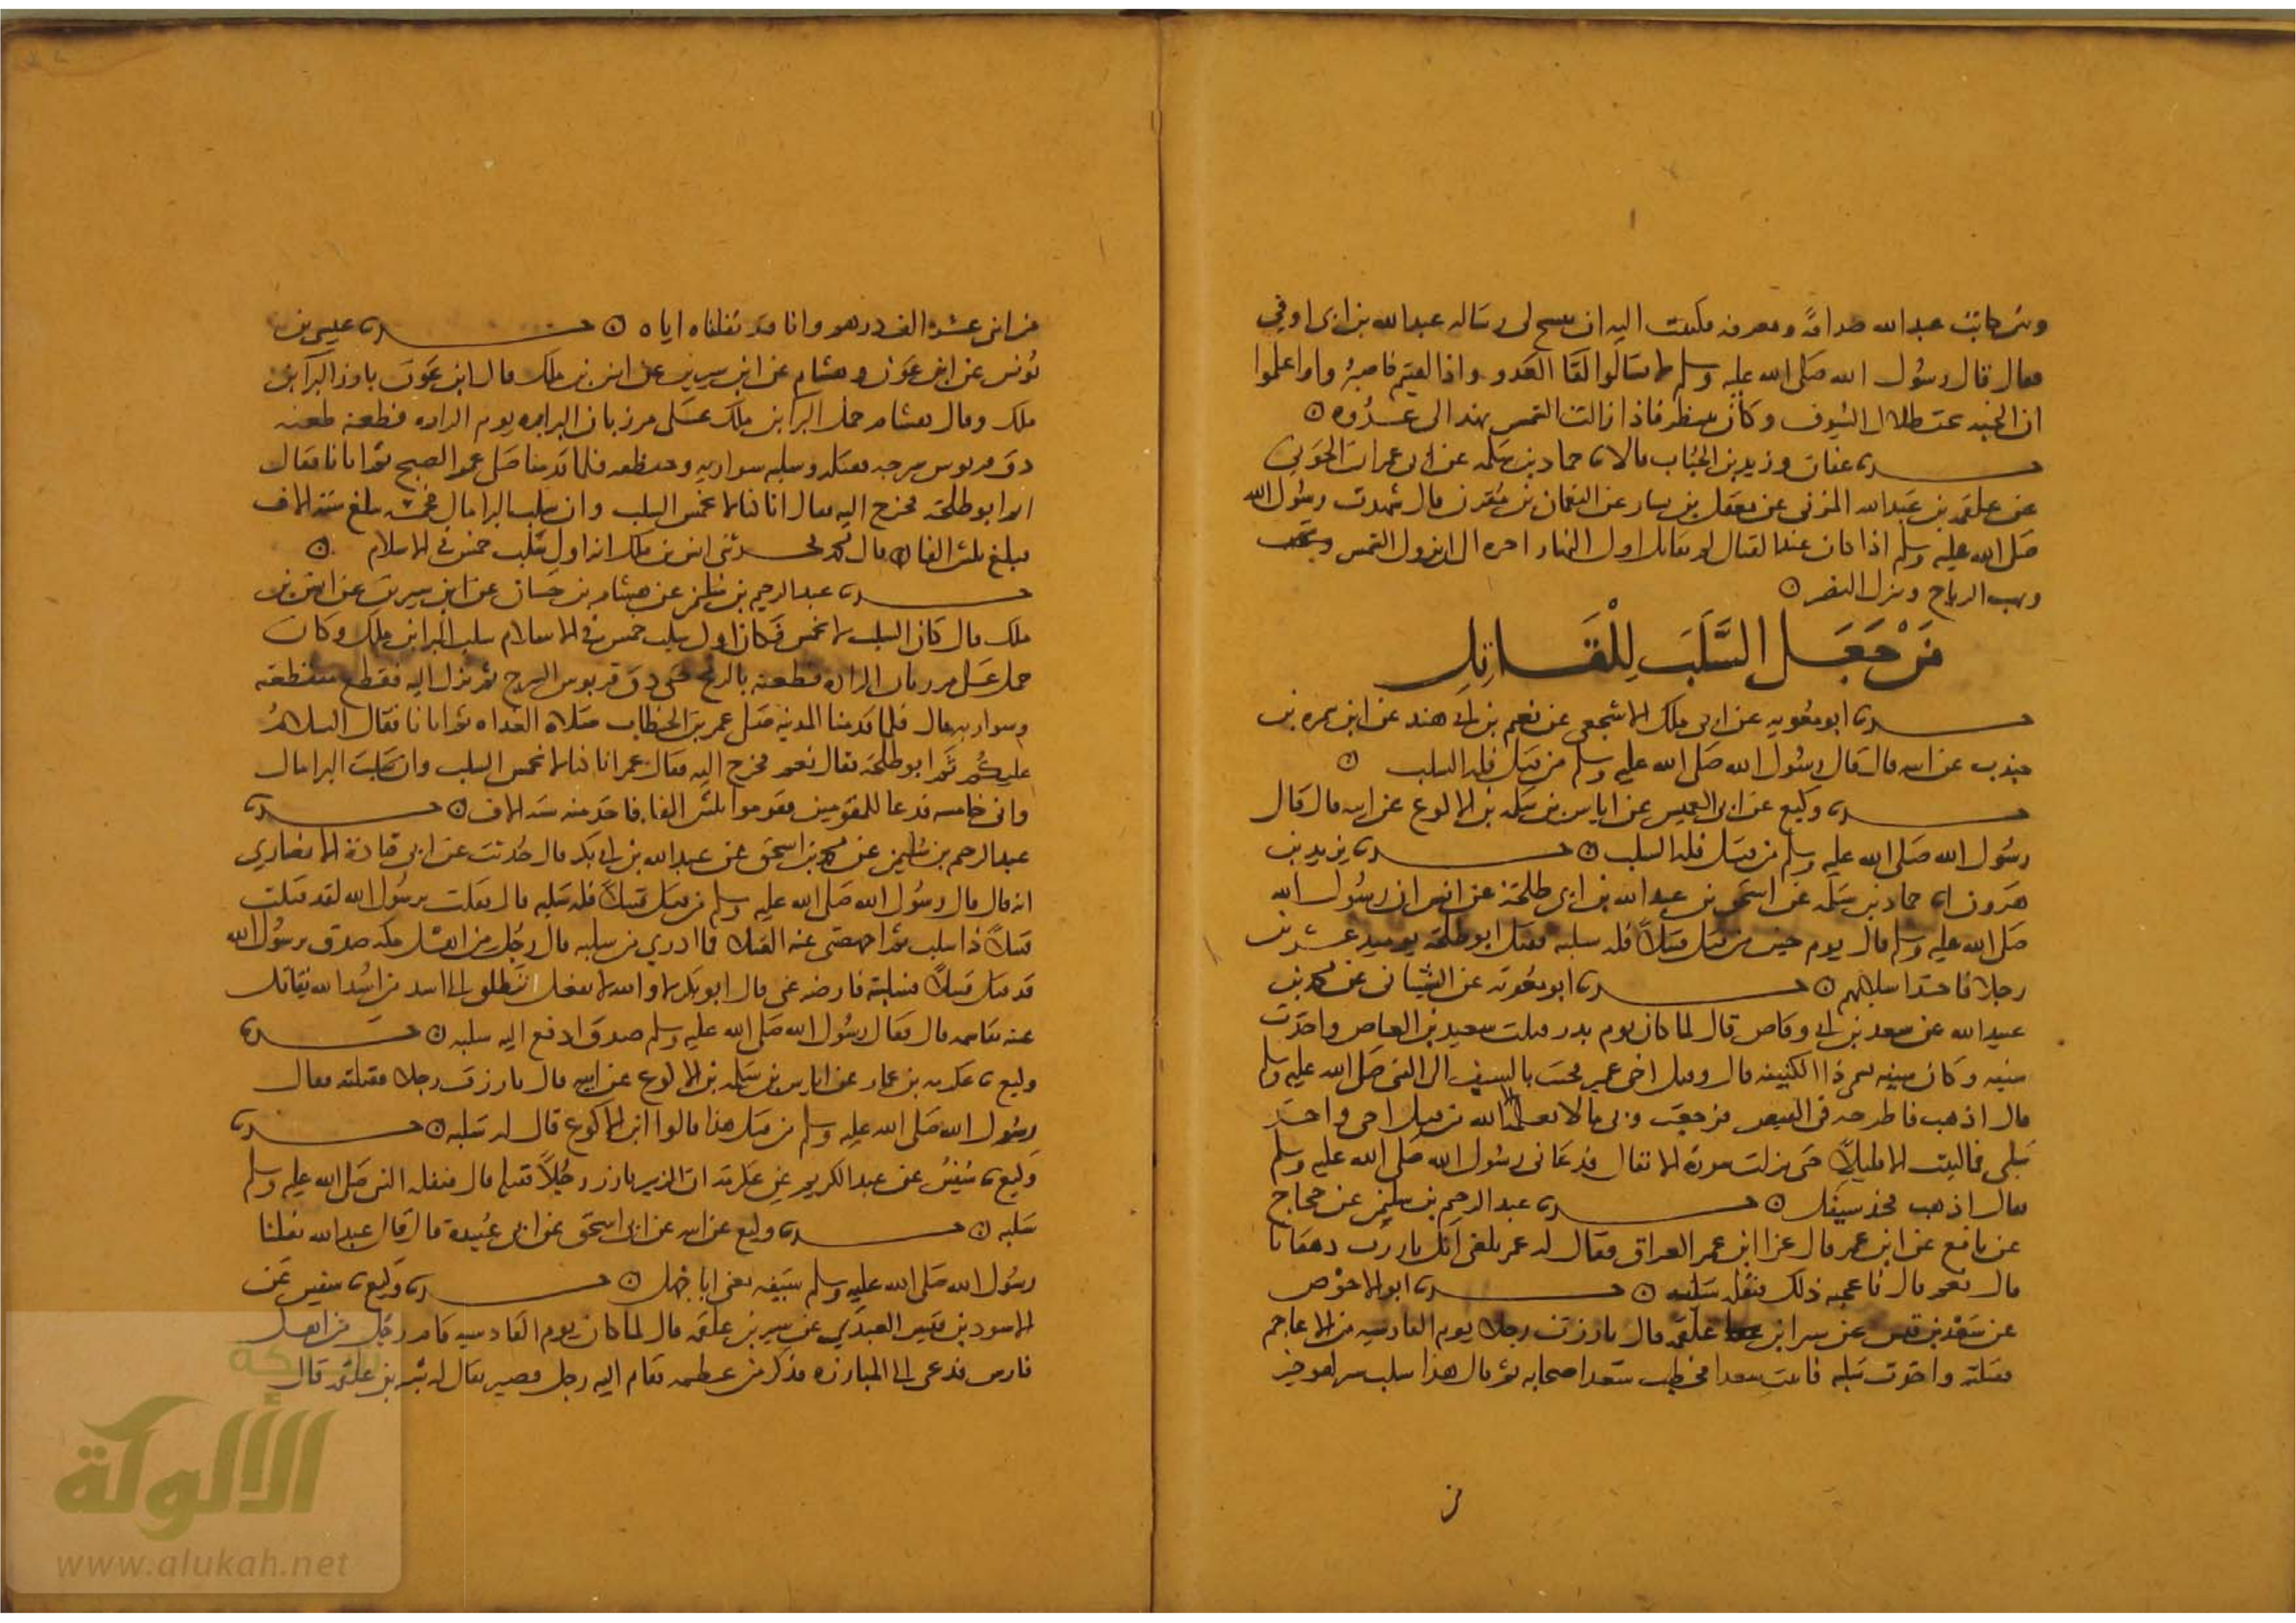 وبين كاتب عبد الله صداقة ومعرفة فكتبت اليه ان ينسخ لي رسالة عبد الله بن ابي اوفى
فقال قال رسول الله صلى الله عليه وسلم لا تسالوا لقا العدو واذا لقيتم فاصبروا واعلموا
ان الجنه تحت ظلال السيوف وكان ينتظر فاذا زالت الشمس نهد الى عدوه
حدثنا عفان وزيد بن الحباب قالا نا حماد بن سلمه عن ابي عمران الجوني
عن علقمه بن عبد الله المزني عن معقل بن يسار عن النعمان بن مقرن قال شهدت رسول الله
صلى الله عليه وسلم اذا كان عند القتال لم يقاتل اول النهار اخره الى ان تزول الشمس
وتهب الرياح وينزل النصر
من جعل السلب للقاتل
حدثنا ابو معويه عن ابي ملك الاشجعي عن نعيم بن ابي هند عن ابن سمره بن
جندب عن ابيه قال قال رسول الله صلى الله عليه وسلم من قتل فله السلب
حدثنا وكيع عن ابي العميس عن اياس بن سلمه بن الاكوع عن ابيه قال قال
رسول الله صلى الله عليه وسلم من قتل فله السلب حدثنا يزيد بن
هرون انا حماد بن سلمه عن اسحق بن عبد الله بن ابي طلحة عن انس ان رسول الله
صلى الله عليه وسلم قال يوم حنين من قتل قتيلا فله سلبه فقتل ابو طلحه يوميذ عشرين
رجلا فاخذ اسلابهم حدثنا ابو معويه عن الشيباني عن محمد بن
عبيد الله عن سعد بن ابي وقاص قال لما كان يوم بدر قتلت سعيد بن العاص واخذت
سيفه وكان سيفه يسمى ذا الكتيفه قال وقتل اخي عمير فجيت بالسيف الى النبي صلى الله عليه وسلم
قال اذهب فاطرحه في القبض فرجعت وبي ما لا يعلمه الا الله من قتل اخي واخذ
سلبي فما لبثت الا قليلا حتى نزلت سورة الانفال فدعاني رسول الله صلى الله عليه وسلم
فقال اذهب فخذ سيفك حدثنا عبد الرحيم بن سليمن عن حجاج
عن نافع عن ابن عمر قال غزا ابن عمر العراق فقال له عمر بلغني انك بارزت دهقانا
قال نعم قال فاعجبه ذلك فنفله سلبه حدثنا ابو الاحوص
عن الاسود بن قيس عن بشر ابن علقمه قال بارزت رجلا يوم القادسيه من الاعاجم
فقتلته واخذت سلبه فاتيت سعدا فخطب سعد اصحابه ثم قال هذا سلب بشر لهو خير
من اثني عشر الف درهم وانا قد نفلناه اياه حدثنا عيسى بن
يونس عن ابن عون وهشام عن ابن سيرين عن انس بن ملك قال ابن عون بارز البرا بن
ملك وقال هشام حمل البرا بن ملك على مرزبان الزاره يوم الزاره فطعنه طعنه
دق قربوس سرجه فقتله وسلبه سواريه ومنطقته فلما قدمنا صلى عمر الصبح ثم اتانا فقال
اثم ابو طلحة فخرج اليه فقال انا كنا لا نخمس السلب وان سلب البرا مال فخمسه فبلغ سته الاف
فبلغ ثلثين الفا قال محمد فحدثني انس بن ملك انه اول سلب خمس في الاسلام
حدثنا عبد الرحيم بن سليمن عن هشام بن حسان عن ابن سيرين عن انس بن
ملك قال كان السلب لا يخمس فكان اول سلب خمس في الاسلام سلب البرا بن ملك وكان
حمل على مرزبان الزاره فطعنه بالرمح حتى دق قربوس السرج ثم نزل اليه فقطع منطقته
وسواريه قال فلما قدمنا المدينه صلى عمر بن الخطاب صلاة الغداه ثم اتانا فقال السلام
عليكم اثم ابو طلحة فقال نعم فخرج اليه فقال عمر انا كنا لا نخمس السلب وان سلب البرا مال
واني خامسه فدعا المقومين فقوموا ثلثين الفا فاخذ منه سته الاف حدثنا
عبد الرحيم بن سليمن عن محمد بن اسحق عن عبد الله بن ابي بكر قال حدثت عن ابي قتادة الانصاري
انه قال قال رسول الله صلى الله عليه وسلم من قتل قتيلا فله سلبه قال فقلت يرسول الله لقد قتلت
قتيلا ذا سلب ثم اجهضتني عنه القتال فما ادري من سلبه قال رجل من اهل مكه صدق يرسول الله
قد قتل قتيلا فسلبته فارضه عني قال ابو بكر لا والله لا يفعل تنطلق الى اسد من اسد الله يقاتل
عنه تقاسمه قال فقال رسول الله صلى الله عليه وسلم صدق ادفع اليه سلبه حدثنا
وكيع نا عكرمه بن عمار عن اياس بن سلمه بن الاكوع عن ابيه قال بارزت رجلا فقتلته فقال
رسول الله صلى الله عليه وسلم من قتل هذا قالوا ابن الاكوع قال له سلبه حدثنا
وكيع نا سفين عن عبد الكريم عن عكرمة ان الزبير بارز رجلا فقتله قال فنفله النبي صلى الله عليه وسلم
سلبه حدثنا وكيع عن ابيه عن ابي اسحق عن ابي عبيدة قال قال عبد الله نفلني
رسول الله صلى الله عليه وسلم سيفه يعني ابا جهل حدثنا وكيع نا سفين عن
الاسود بن قيس العبدي عن بشر بن علقمه قال لما كان يوم القادسيه قام رجل من اهل
فارس فدعى الى المبارزه فذكر من عظمه فقام اليه رجل قصير يقال له بشر بن علقمه قال
من
شبكة
الألوكة
www.alukah.net